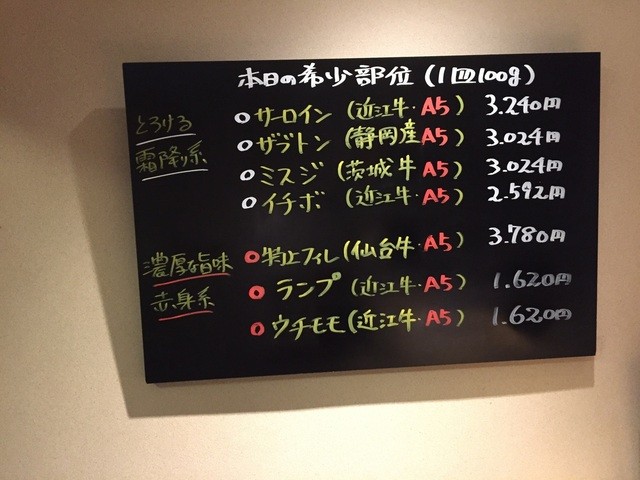 本日の希少部位(1皿100g)
とろける
霜降り系
○サーロイン(近江牛・A5) 3.240円
○ザブトン(静岡産A5) 3.024円
○ミスジ(茨城牛A5) 3.024円
○イチボ(近江牛・A5) 2.592円
濃厚な旨味
赤身系
○特上フィレ(仙台牛・A5) 3.780円
○ランプ(近江牛・A5) 1.620円
○ウチモモ(近江牛・A5) 1.620円